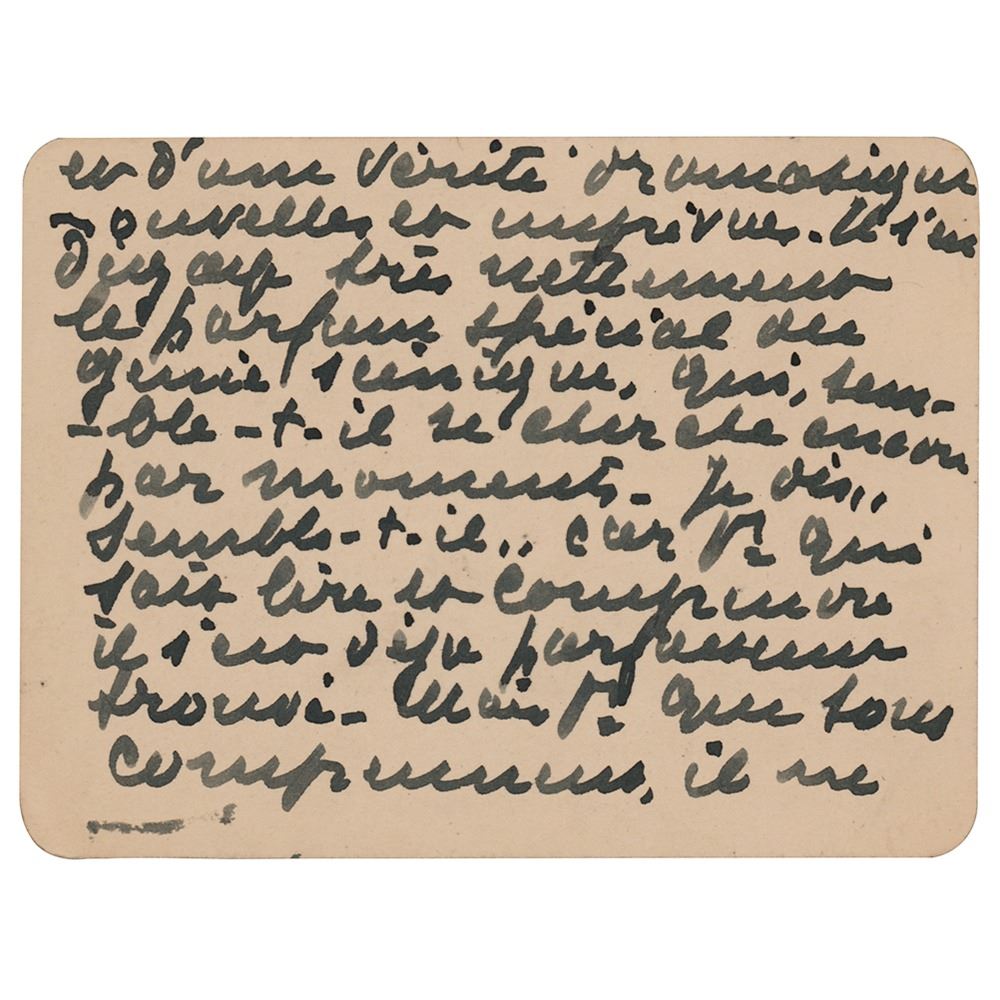 et d'une vérité dramatique
nouvelles et imprévues. Il s'en
dégage très nettement
le parfum spécial du
génie scénique, qui, sem-
-ble-t-il se cherche encore
par moments. Je dis,,
semble-t-il,, car pr qui
sait lire et comprendre
il s'est déjà parfaitement
trouvé. Mais pr que tous
comprennent, il ne